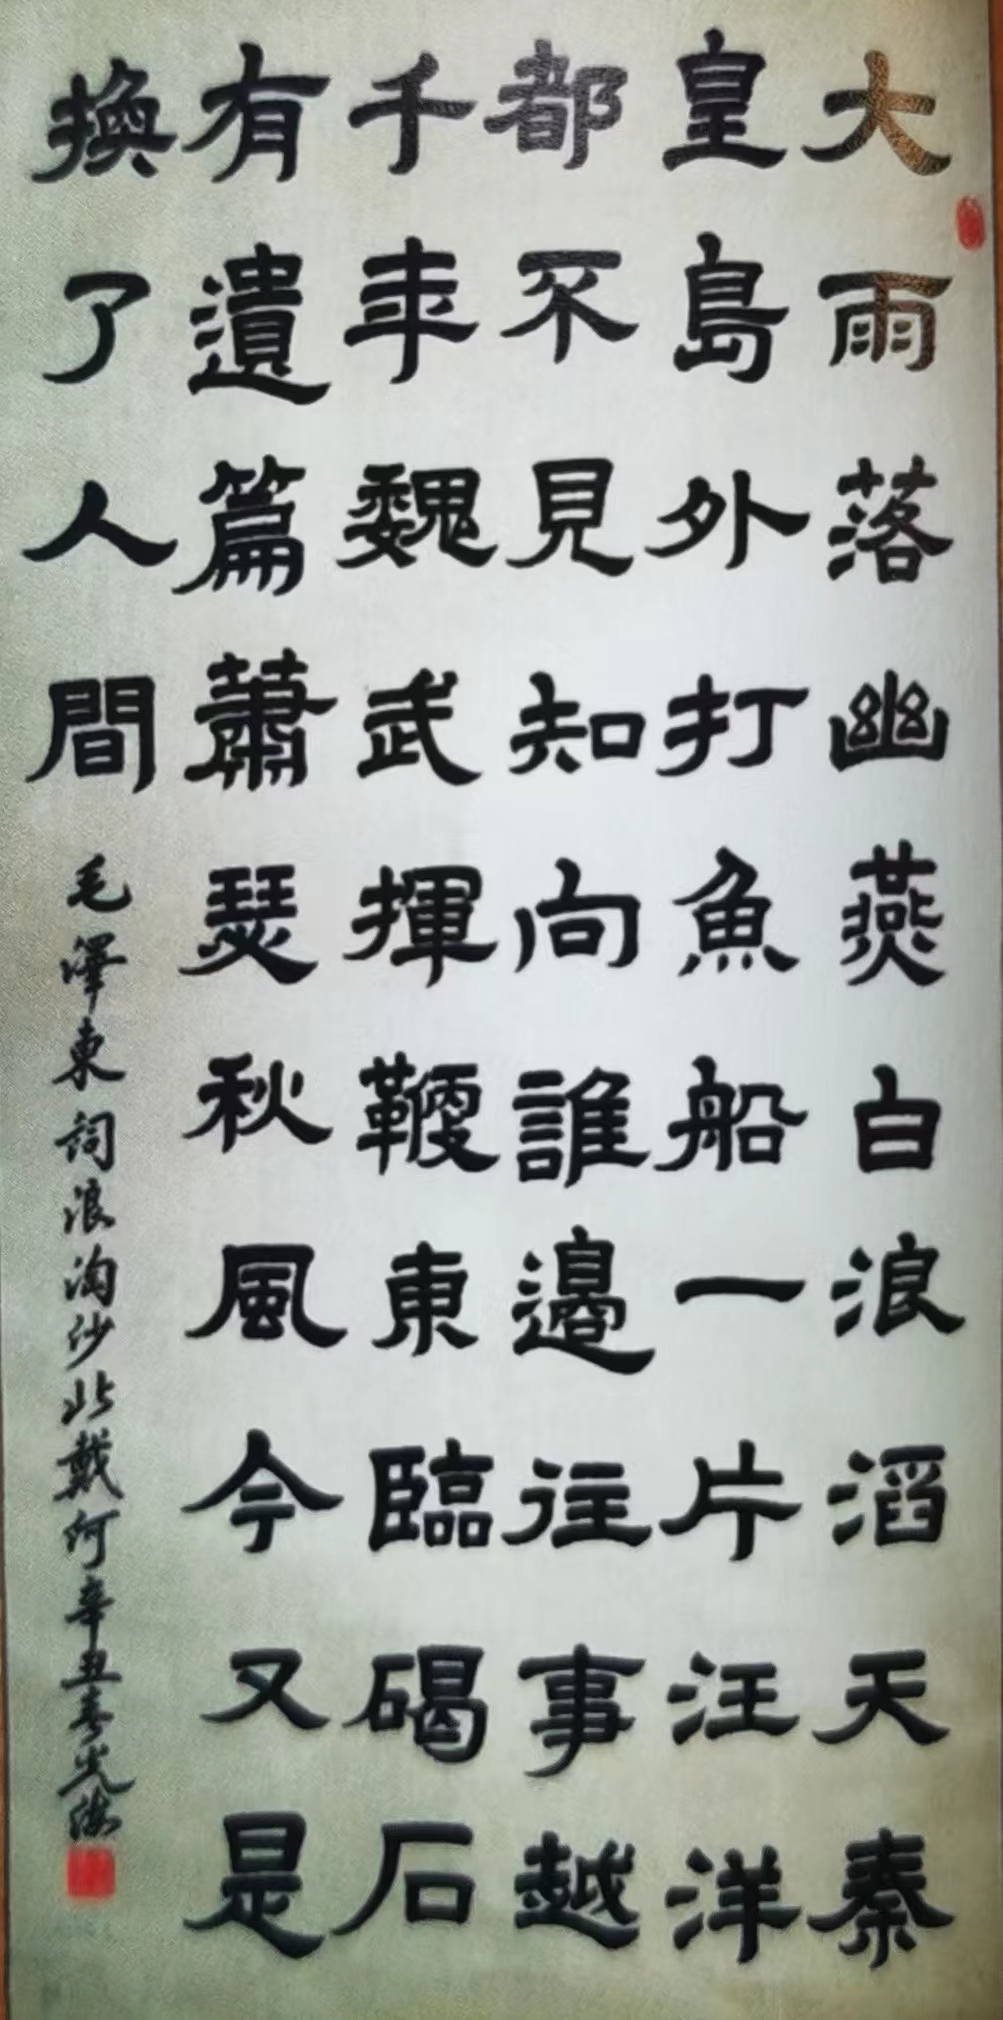 大雨落幽燕白浪滔天秦
皇島外打魚船一片汪洋
都不見知向誰邊往事越
千年魏武揮鞭東臨碣石
有遺篇蕭瑟秋風今又是
換了人間
毛澤東詞浪淘沙北戴河辛丑春光海